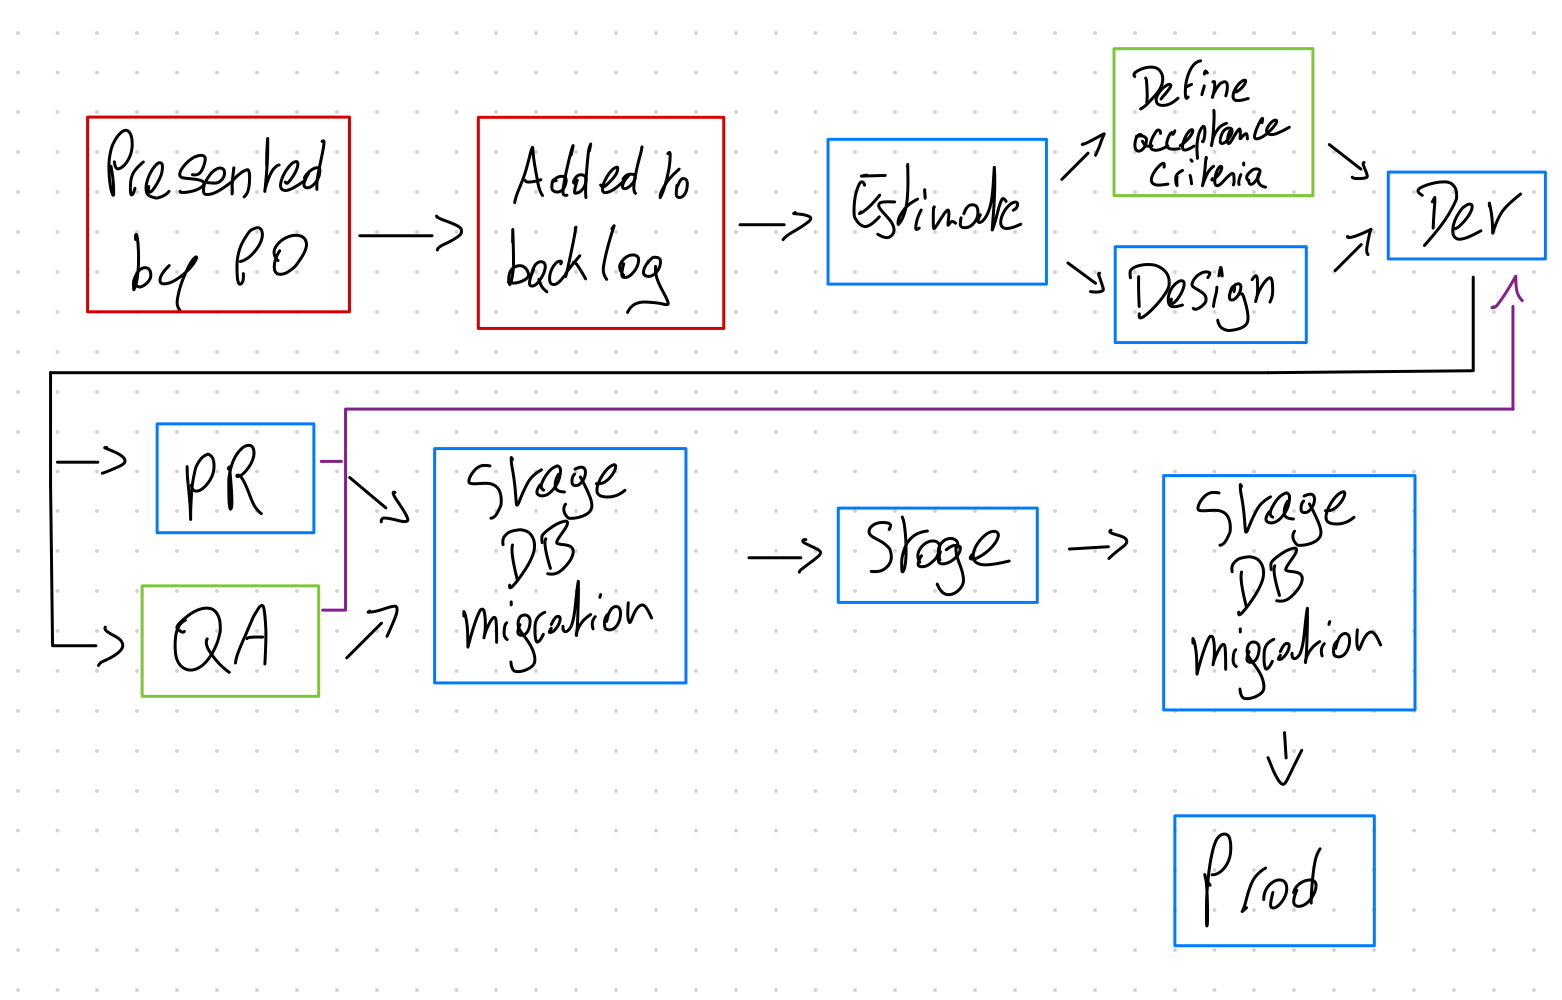 Presented
by PO
Added to
backlog
Estimate
Define
acceptance
criteria
Design
Dev
PR
QA
Stage
DB
migration
Stage
Stage
DB
migration
Prod